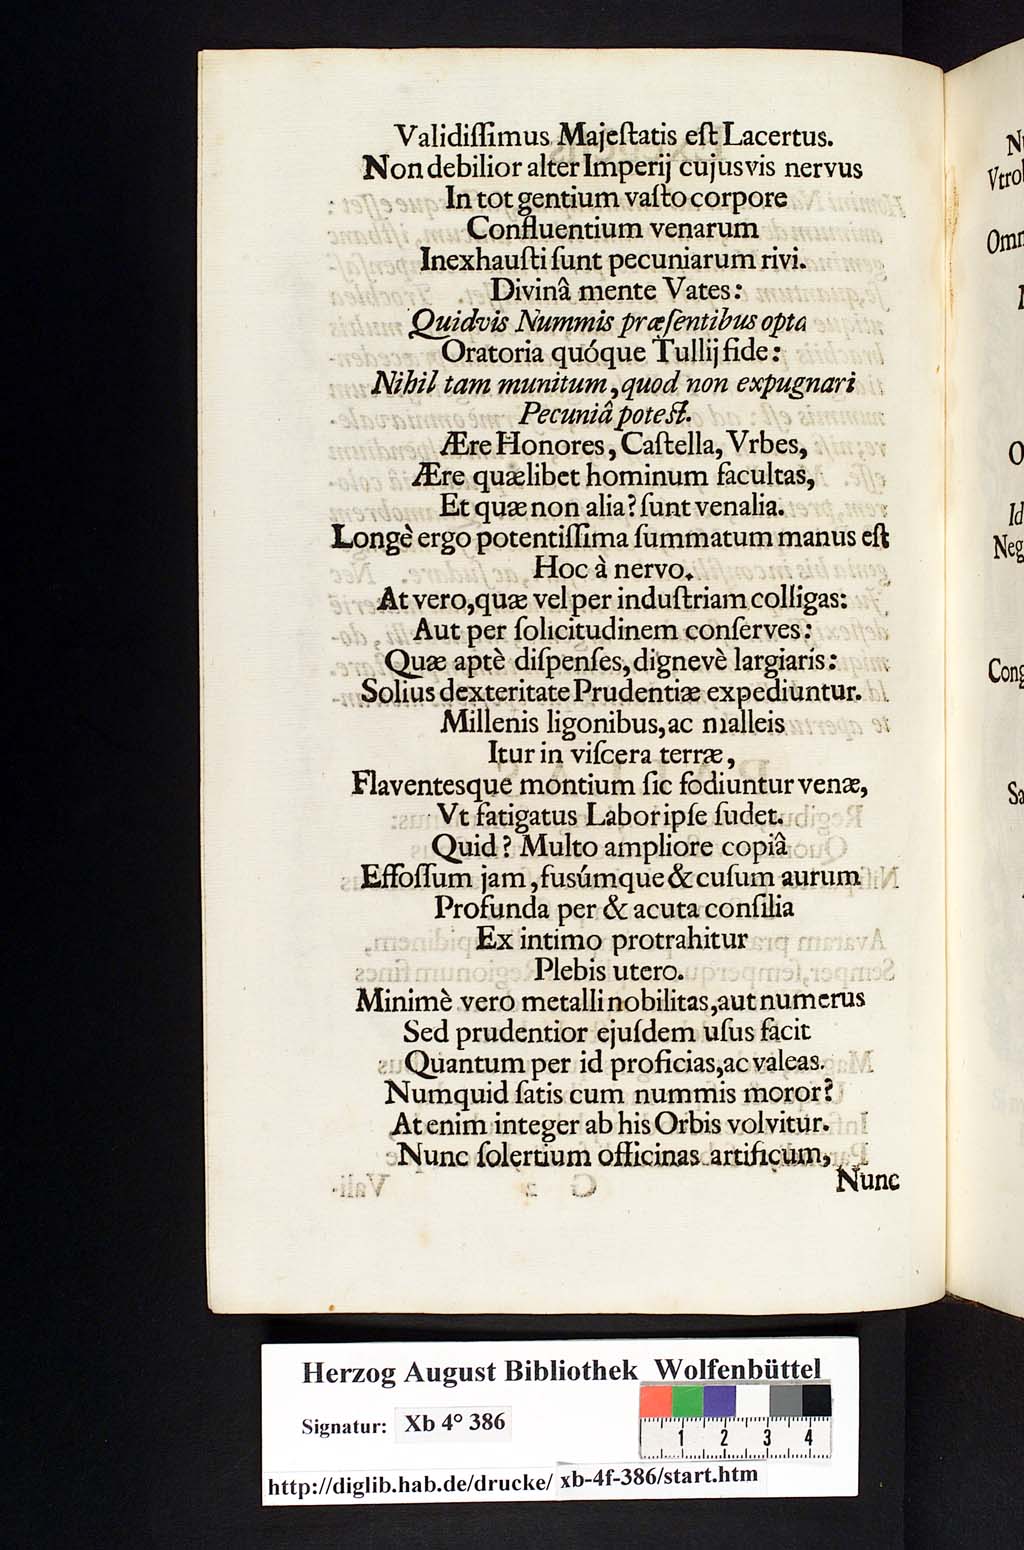 Validiſſimus Majeſtatis eſt Lacertus.
Non debilior alter Imperij cujusvis nervus
In tot gentium vaſto corpore
Confluentium venarum
Inexhauſti ſunt pecuniarum rivi.
Divinâ mente Vates:
Quidvis Nummis præſentibus opta
Oratoria quóque Tullij fide:
Nihil tam munitum, quod non expugnari
Pecuniâ poteſt.
Ære Honores, Caſtella, Vrbes,
Ære quælibet hominum facultas,
Et quæ non alia? ſunt venalia.
Longè ergo potentiſſima ſummatum manus eſt
Hoc à nervo.
At vero, quæ vel per induſtriam colligas:
Aut per ſolicitudinem conſerves:
Quæ aptè diſpenſes, dignevè largiaris:
Solius dexteritate Prudentiæ expediuntur.
Millenis ligonibus, ac malleis
Itur in viſcera terræ,
Flaventesque montium ſic fodiuntur venæ,
Vt fatigatus Labor ipſe ſudet.
Quid? Multo ampliore copiâ
Effoſſum jam, fusúmque & cuſum aurum
Profunda per & acuta conſilia
Ex intimo protrahitur
Plebis utero.
Minimè vero metalli nobilitas, aut numerus
Sed prudentior ejuſdem uſus facit
Quantum per id proficias, ac valeas.
Numquid ſatis cum nummis moror?
At enim integer ab his Orbis volvitur.
Nunc ſolertium officinas artificum,
Nunc
Vtro
Omn
O
Id
Neg
Cong
Sa
Herzog August Bibliothek Wolfenbüttel
Signatur: Xb 4° 386
1 2 3 4
http://diglib.hab.de/drucke/ xb-4f-386/start.htm